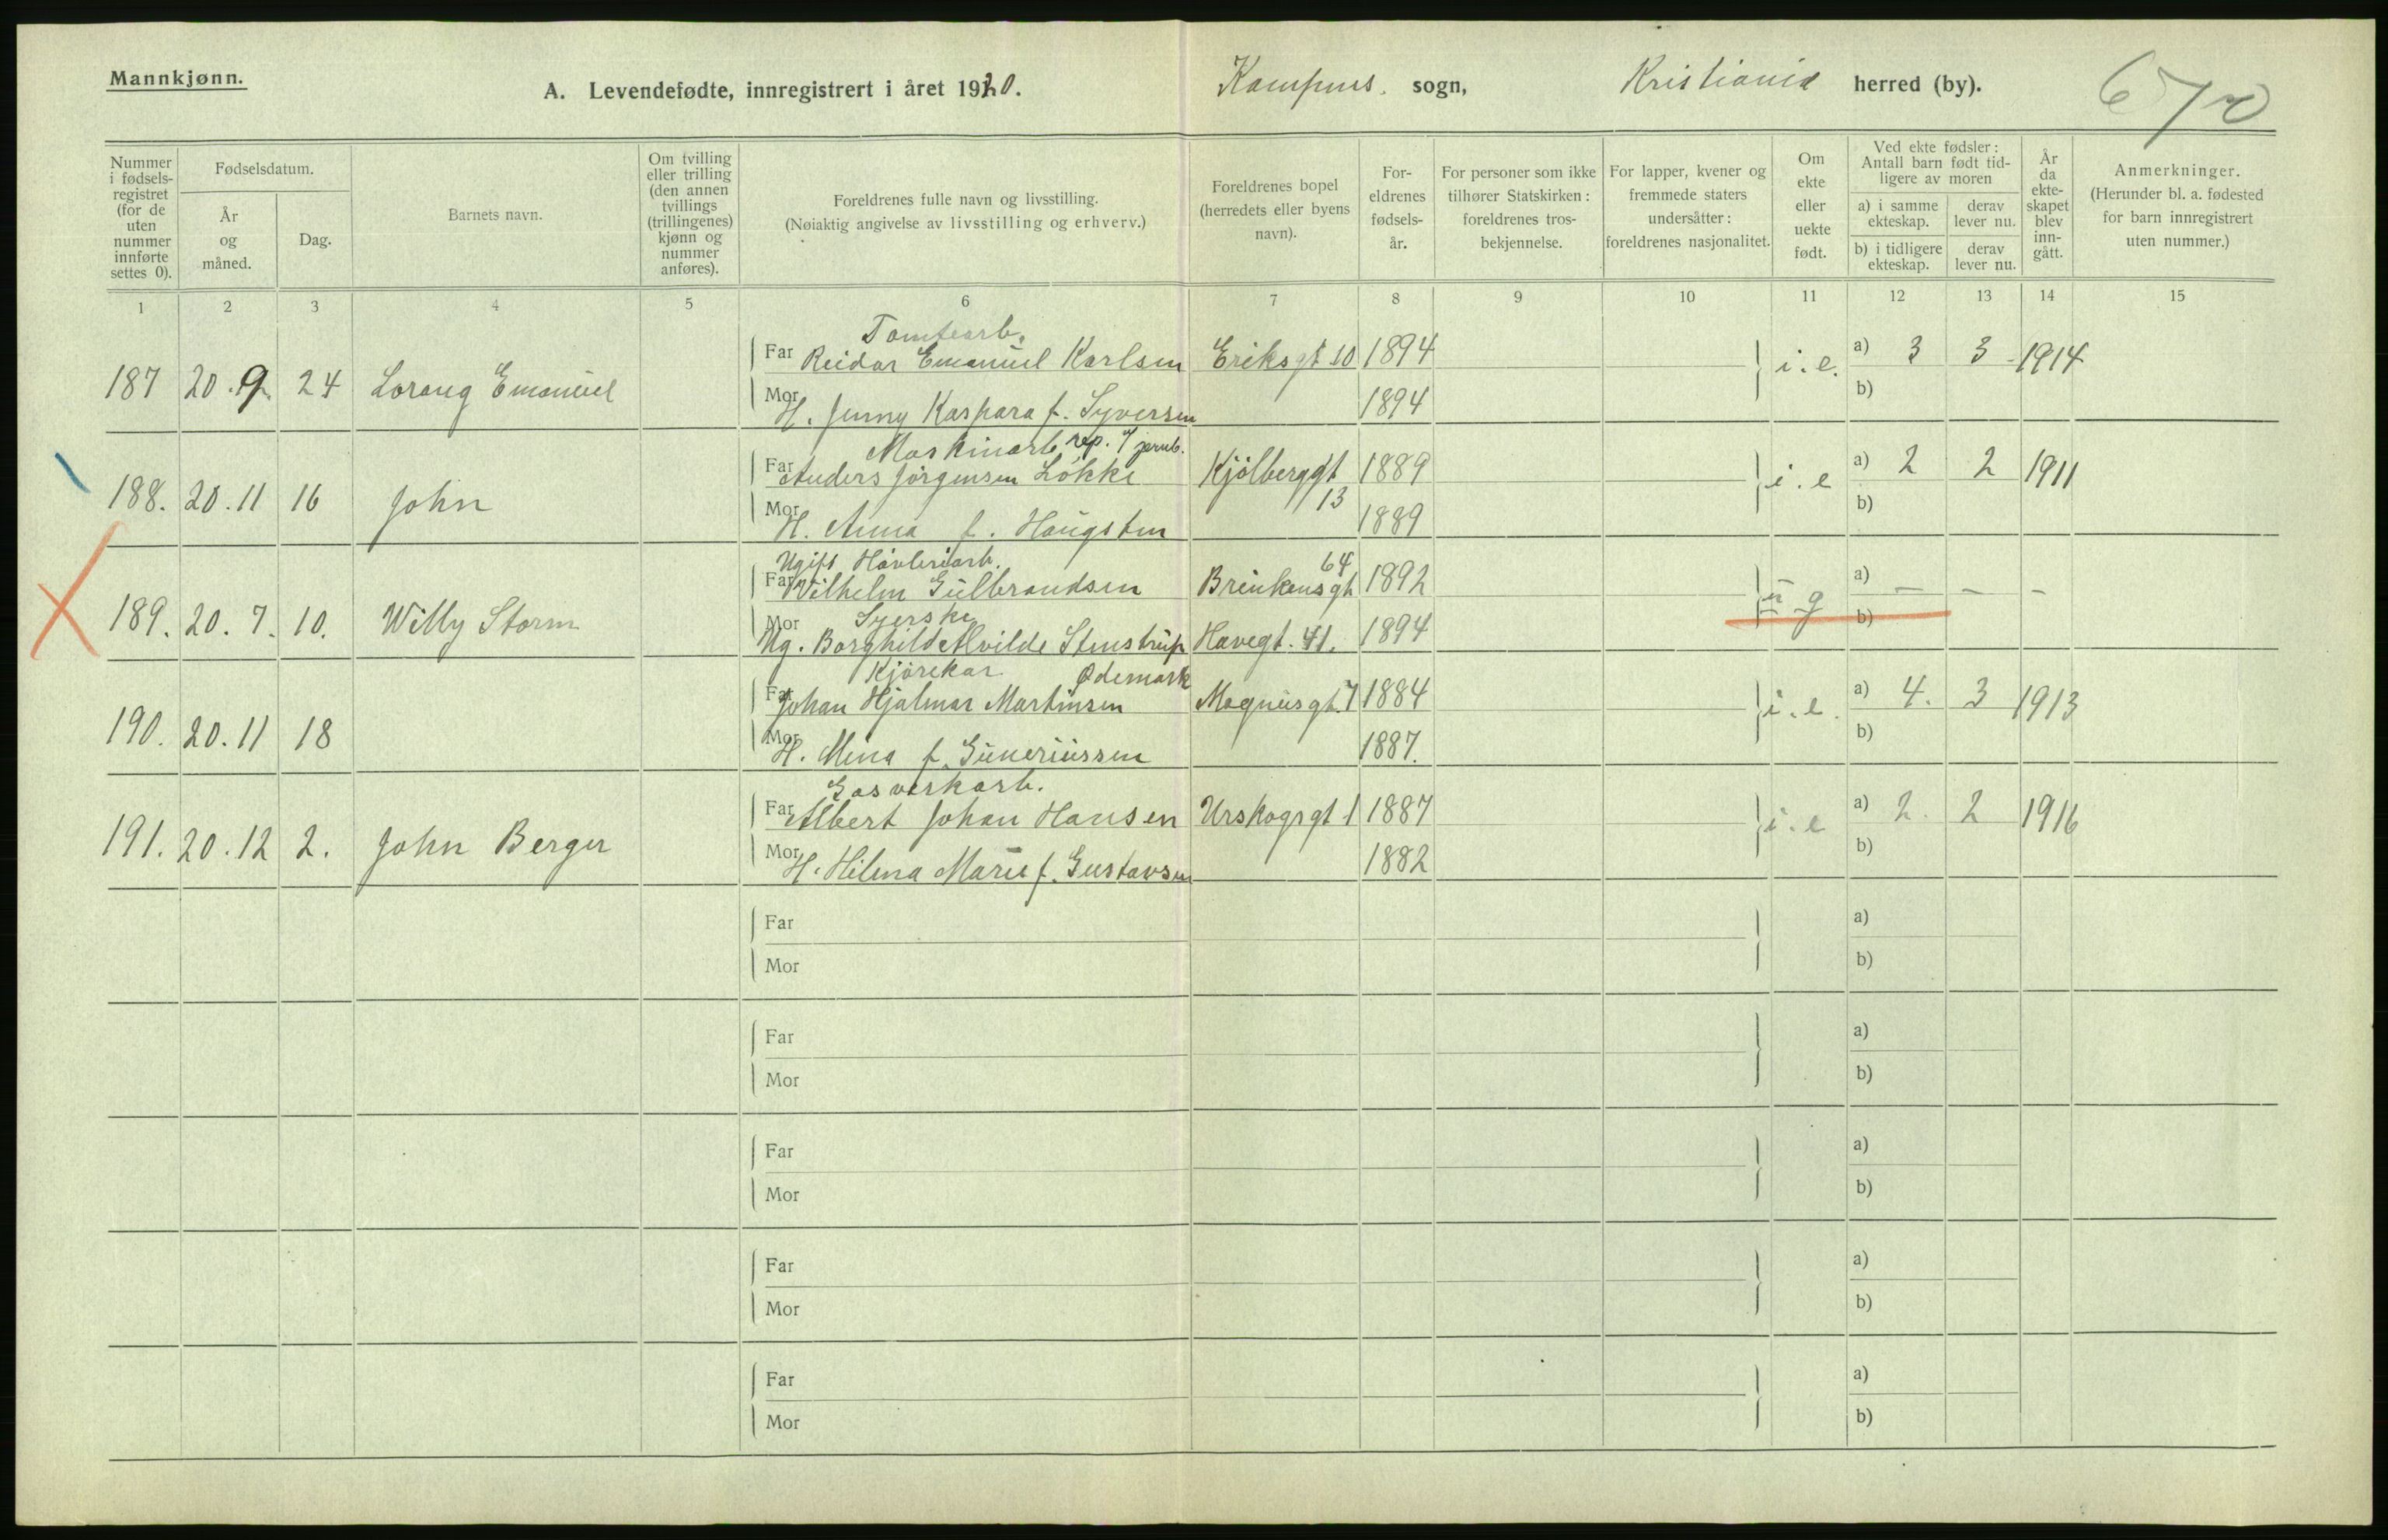 Mannkjønn.
A. Levendefødte, innregistrert i året 1920. Kampens sogn, Kristiania herred (by). 670
Nummer i fødsels-registret (for de uten nummer innførte settes 0).
Fødselsdatum.
År og måned.
Dag.
Barnets navn.
Om tvilling eller trilling (den annen tvillings (trillingenes) kjønn og nummer anføres).
Foreldrenes fulle navn og livsstilling.
(Nøiaktig angivelse av livsstilling og erhverv.)
Foreldrenes bopel (herredets eller byens navn).
For-eldrenes fødsels-år.
For personer som ikke tilhører Statskirken: foreldrenes tros-bekjennelse.
For lapper, kvener og fremmede staters undersåtter: foreldrenes nasjonalitet.
Om ekte eller uekte født.
Ved ekte fødsler: Antall barn født tid-ligere av moren
a) i samme ekteskap.
derav lever nu.
b) i tidligere ekteskap.
derav lever nu.
År da ekte-skapet blev inn-gått.
Anmerkninger.
(Herunder bl. a. fødested for barn innregistrert uten nummer.)
1 2 3 4 5 6 7 8 9 10 11 12 13 14 15
Tomtearb.
187 20.9. 24 Lorang Emanuel Far Reidar Emanuel Karlsen Eriksgt 10 1894 i.e. a) 3 3 1914
Mor H. Jenny Kaspara f. Syversen 1894 b)
Maskinarb. rep. v/ jernb.
188. 20.11 16 John Far Anders Jörgensen Lökke Kjölberggt 13 1889 i.e a) 2 2 1911
Mor H. Anna f. Haugsten 1889 b)
Ugift Hövleriarb.
189. 20.7. 10. Willy Storm Far Wilhelm Gulbrandsen Brinkensgt 64 1892 u g a) — — -
Syerske
Mor Ug. Borghild Alvilde Stenstrup Havegt. 41. 1894 b)
Kjörekar Ødemark
190. 20.11 18 Far Johan Hjalmar Martinsen Magnusgt. 7 1884 i.e. a) 4. 3 1913
Mor H. Mina f. Guneriussen 1887. b)
Gasverkarb.
191. 20.12 2. John Berger Far Albert Johan Hansen Urskogsgt 1 1887 i.e a) 2. 2 1916
Mor H. Hilma Marie f. Gustavsen 1882 b)
Far a)
Mor b)
Far a)
Mor b)
Far a)
Mor b)
Far a)
Mor b)
Far a)
Mor b)